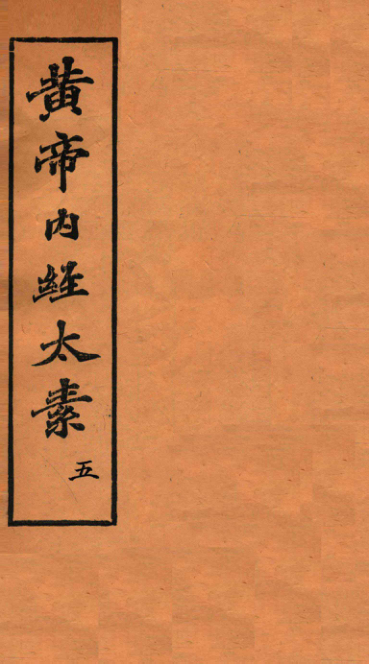 黄帝内經太素
五